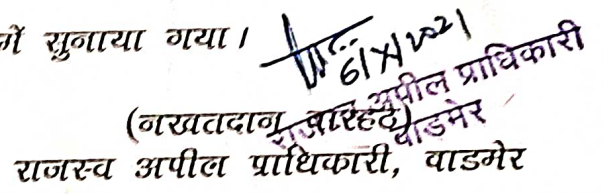 में सुनाया गया।
6/X/2021
राजस्व अपील प्राधिकारी
बाडमेर
(नखतदान बारहठ)
राजस्व अपील प्राधिकारी, बाडमेर